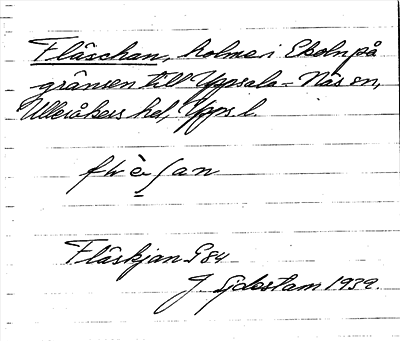 Fläschan, holme i Ekoln på
gränsen till Uppsala-Näs sn,
Ulleråkers hd, Upps. l.
Fläskjan G 84
J Sjöstam 1939.